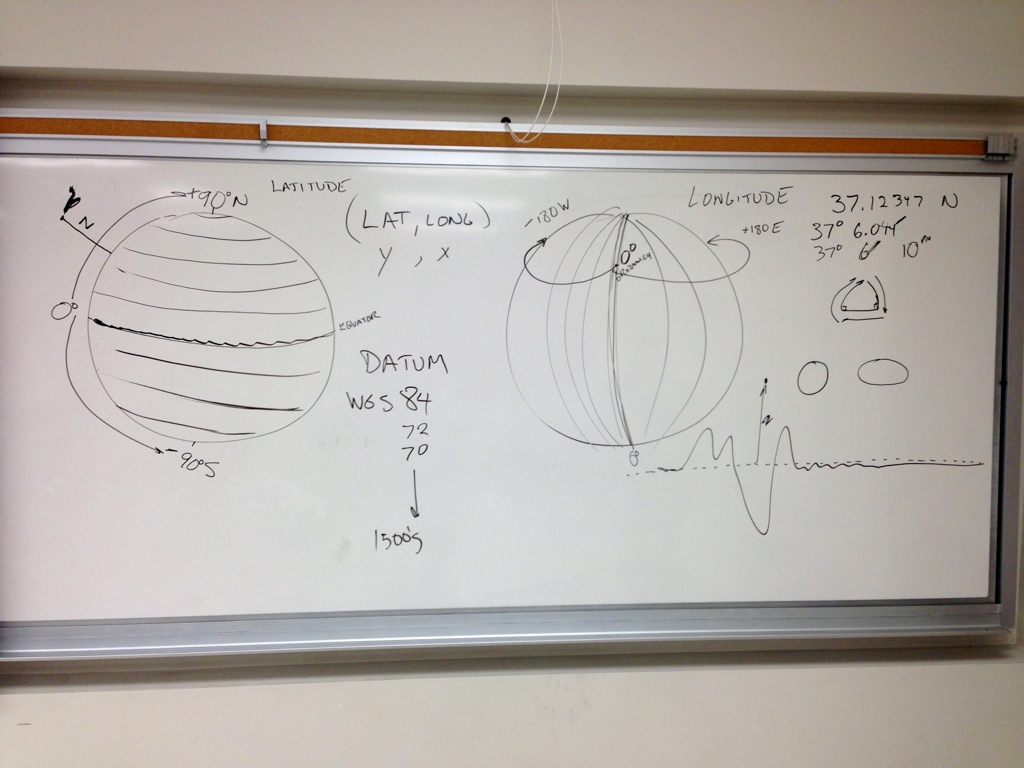 +90°N
LATITUDE
Z
0°
EQUATOR
-90°S
(LAT, LONG)
y , x
DATUM
WGS 84
72
70
1500's
LONGITUDE
-180W
+180E
0°
0°
37.12347 N
37° 6.044
37° 6' 10